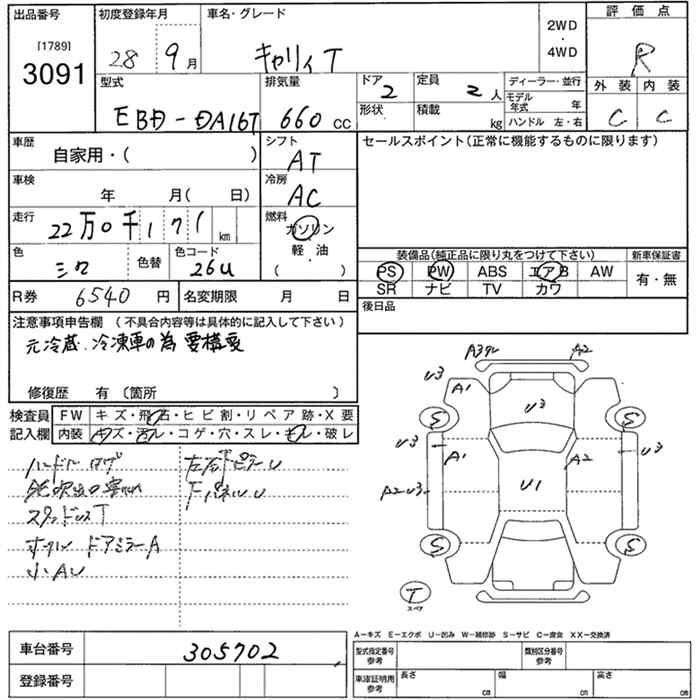 出品番号
[1789]
3091
初度登録年月
28 9月
車名・グレード
キャリィ T
2WD
・
4WD
評価点
R
型式
EBD-DA16T
排気量
660 CC
ドア
2
定員
2 人
ディーラー・並行
モデル年式 年
ハンドル 左・右
形状
積載
kg
外装 内装
C C
車歴
自家用・( )
シフト
AT
セールスポイント(正常に機能するものに限ります)
車検
年 月( 日)
冷房
AC
走行
22万0千171km
燃料
ガソリン
軽・油
( )
色
シロ
色替
色コード
26U
装備品(純正品に限り丸をつけて下さい)
PS PW ABS エアB AW
SR ナビ TV カワ
新車保証書
有・無
R券 6540 円
名変期限 月 日
後日品
注意事項申告欄 (不具合内容等は具体的に記入して下さい)
元冷蔵.冷凍車の為 要構変
修復歴 有 〔箇所 〕
検査員
記入欄
FW キズ・飛石・ヒビ割・リペア跡・X要
内装 キズ・汚レ・コゲ・穴・スレ・モレ・破レ
スタッドレスT
ドアミラーA
小AU
A3 A2
U3 A1 U3
S S
U3 A1 A2 U3
A2 U3 U1
S S
T
スペア
A-キズ E-エクボ U-凹み W-補修跡 S-サビ C-腐食 XX-交換済
車台番号 305702
登録番号
型式指定番号
参考
類別区分番号
参考
車庫証明用
参考
長さ cm
幅 cm
高さ cm